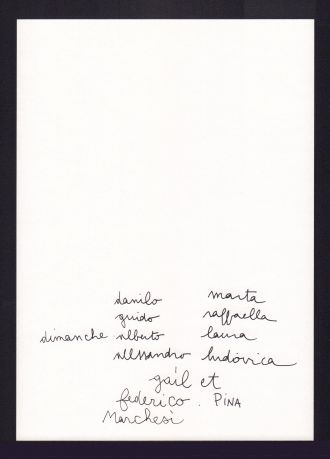 danilo marta
guido raffaella
dimanche alberto laura
alessandro ludovica
gail et
federico. PINA
Marchesi